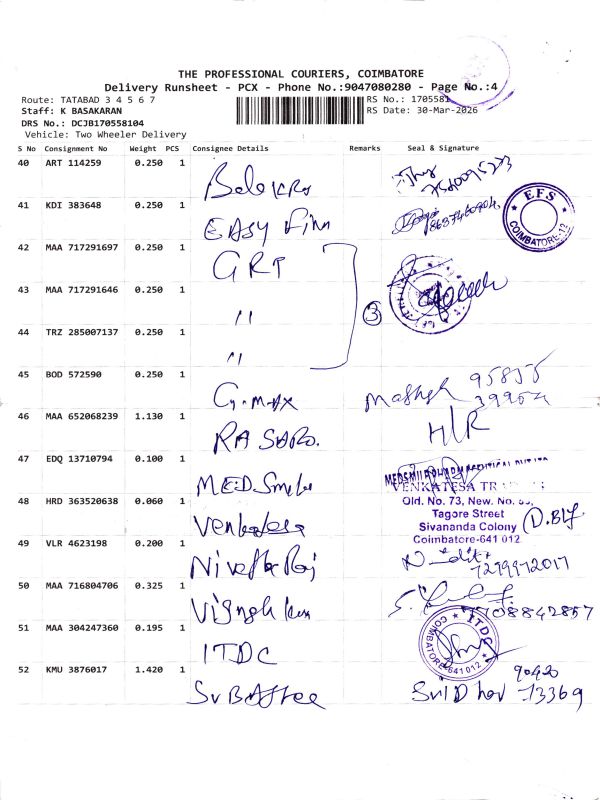 THE PROFESSIONAL COURIERS, COIMBATORE
Delivery Runsheet - PCX - Phone No.:9047080280 - Page No.:4
Route: TATABAD 3 4 5 6 7
RS No.: 1705581
Staff: K BASAKARAN
RS Date: 30-Mar-2026
DRS No.: DCJB170558104
Vehicle: Two Wheeler Delivery
S No Consignment No Weight PCS Consignee Details Remarks Seal & Signature
40 ART 114259 0.250 1
41 KDI 383648 0.250 1 EASY Finn
E.F.S
COIMBATORE-12
42 MAA 717291697 0.250 1 GRT
43 MAA 717291646 0.250 1 "
3
44 TRZ 285007137 0.250 1 "
45 BOD 572590 0.250 1 G-max
95855
39954
46 MAA 652068239 1.130 1 RASARO. H/R
47 EDQ 13710794 0.100 1 MED Smile
VENKATESA
Old. No. 73, New. No.
48 HRD 363520638 0.060 1 Venkatesa
Tagore Street
Sivananda Colony
Coimbatore-641 012
49 VLR 4623198 0.200 1
7299972017
50 MAA 716804706 0.325 1
7708842857
51 MAA 304247360 0.195 1 ITDC
ITDC
COIMBATORE-641012
52 KMU 3876017 1.420 1 SUBASHree
90420
SriDhar 13369